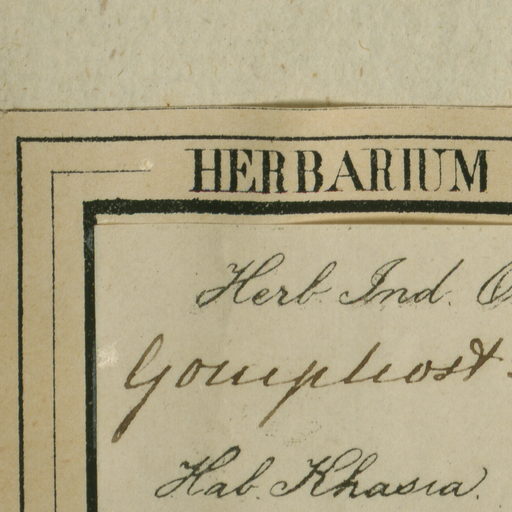 HERBARIUM
Herb. Ind. O
Gomphost
Hab. Khasia.